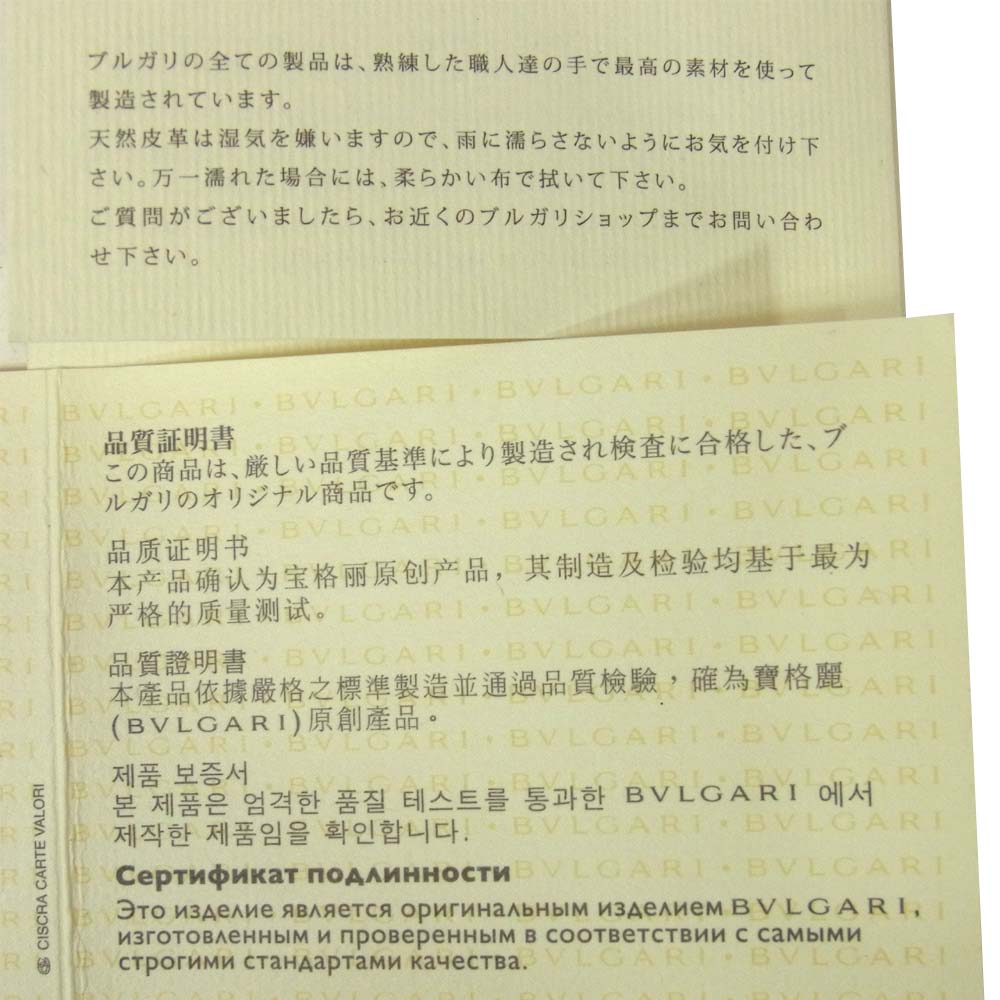 ブルガリの全ての製品は、熟練した職人達の手で最高の素材を使って
製造されています。
天然皮革は湿気を嫌いますので、雨に濡らさないようにお気を付け下
さい。万一濡れた場合には、柔らかい布で拭いて下さい。
ご質問がございましたら、お近くのブルガリショップまでお問い合わ
せ下さい。
品質証明書
この商品は、厳しい品質基準により製造され検査に合格した、ブ
ルガリのオリジナル商品です。
品质证明书
本产品确认为宝格丽原创产品，其制造及检验均基于最为
严格的质量测试。
品質證明書
本產品依據嚴格之標準製造並通過品質檢驗，確為寶格麗
(BVLGARI)原創產品。
제품 보증서
본 제품은 엄격한 품질 테스트를 통과한 BVLGARI 에서
제작한 제품임을 확인합니다.
Сертификат подлинности
Это изделие является оригинальным изделием BVLGARI,
изготовленным и проверенным в соответствии с самыми
строгими стандартами качества.
CISCRA CARTE VALORI